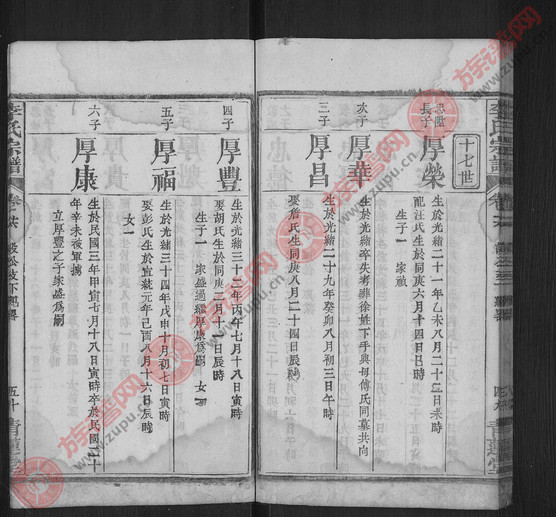 李氏宗譜
十七世
忠監長子
厚榮
生於光緒二十一年乙未八月二十三日未時
配汪氏生於同庚六月十四日巳時
生子一 家禎
次子
厚華
生於光緒 卒失考葬徐姓下手與母傅氏同墓共向
三子
厚昌
生於光緒二十九年癸卯八月初三日午時
娶詹氏生同庚八月二十四日寅時
四子
厚豐
生於光緒三十二年丙午七月十八日寅時
娶胡氏生於同庚二月十一日辰時
生子一 家盛過繼厚康為嗣 女一
五子
厚福
生於光緒三十四年戊申十月初七日寅時
娶彭氏生於宣統元年己酉八月十六日辰時
女一
六子
厚康
生於民國三年甲寅七月十八日寅時卒於民國二十
年辛未被軍擄
立厚豐之子家盛為嗣
李氏宗譜
五十
青蓮堂
青蓮堂
族譜網
www.zupu.cn